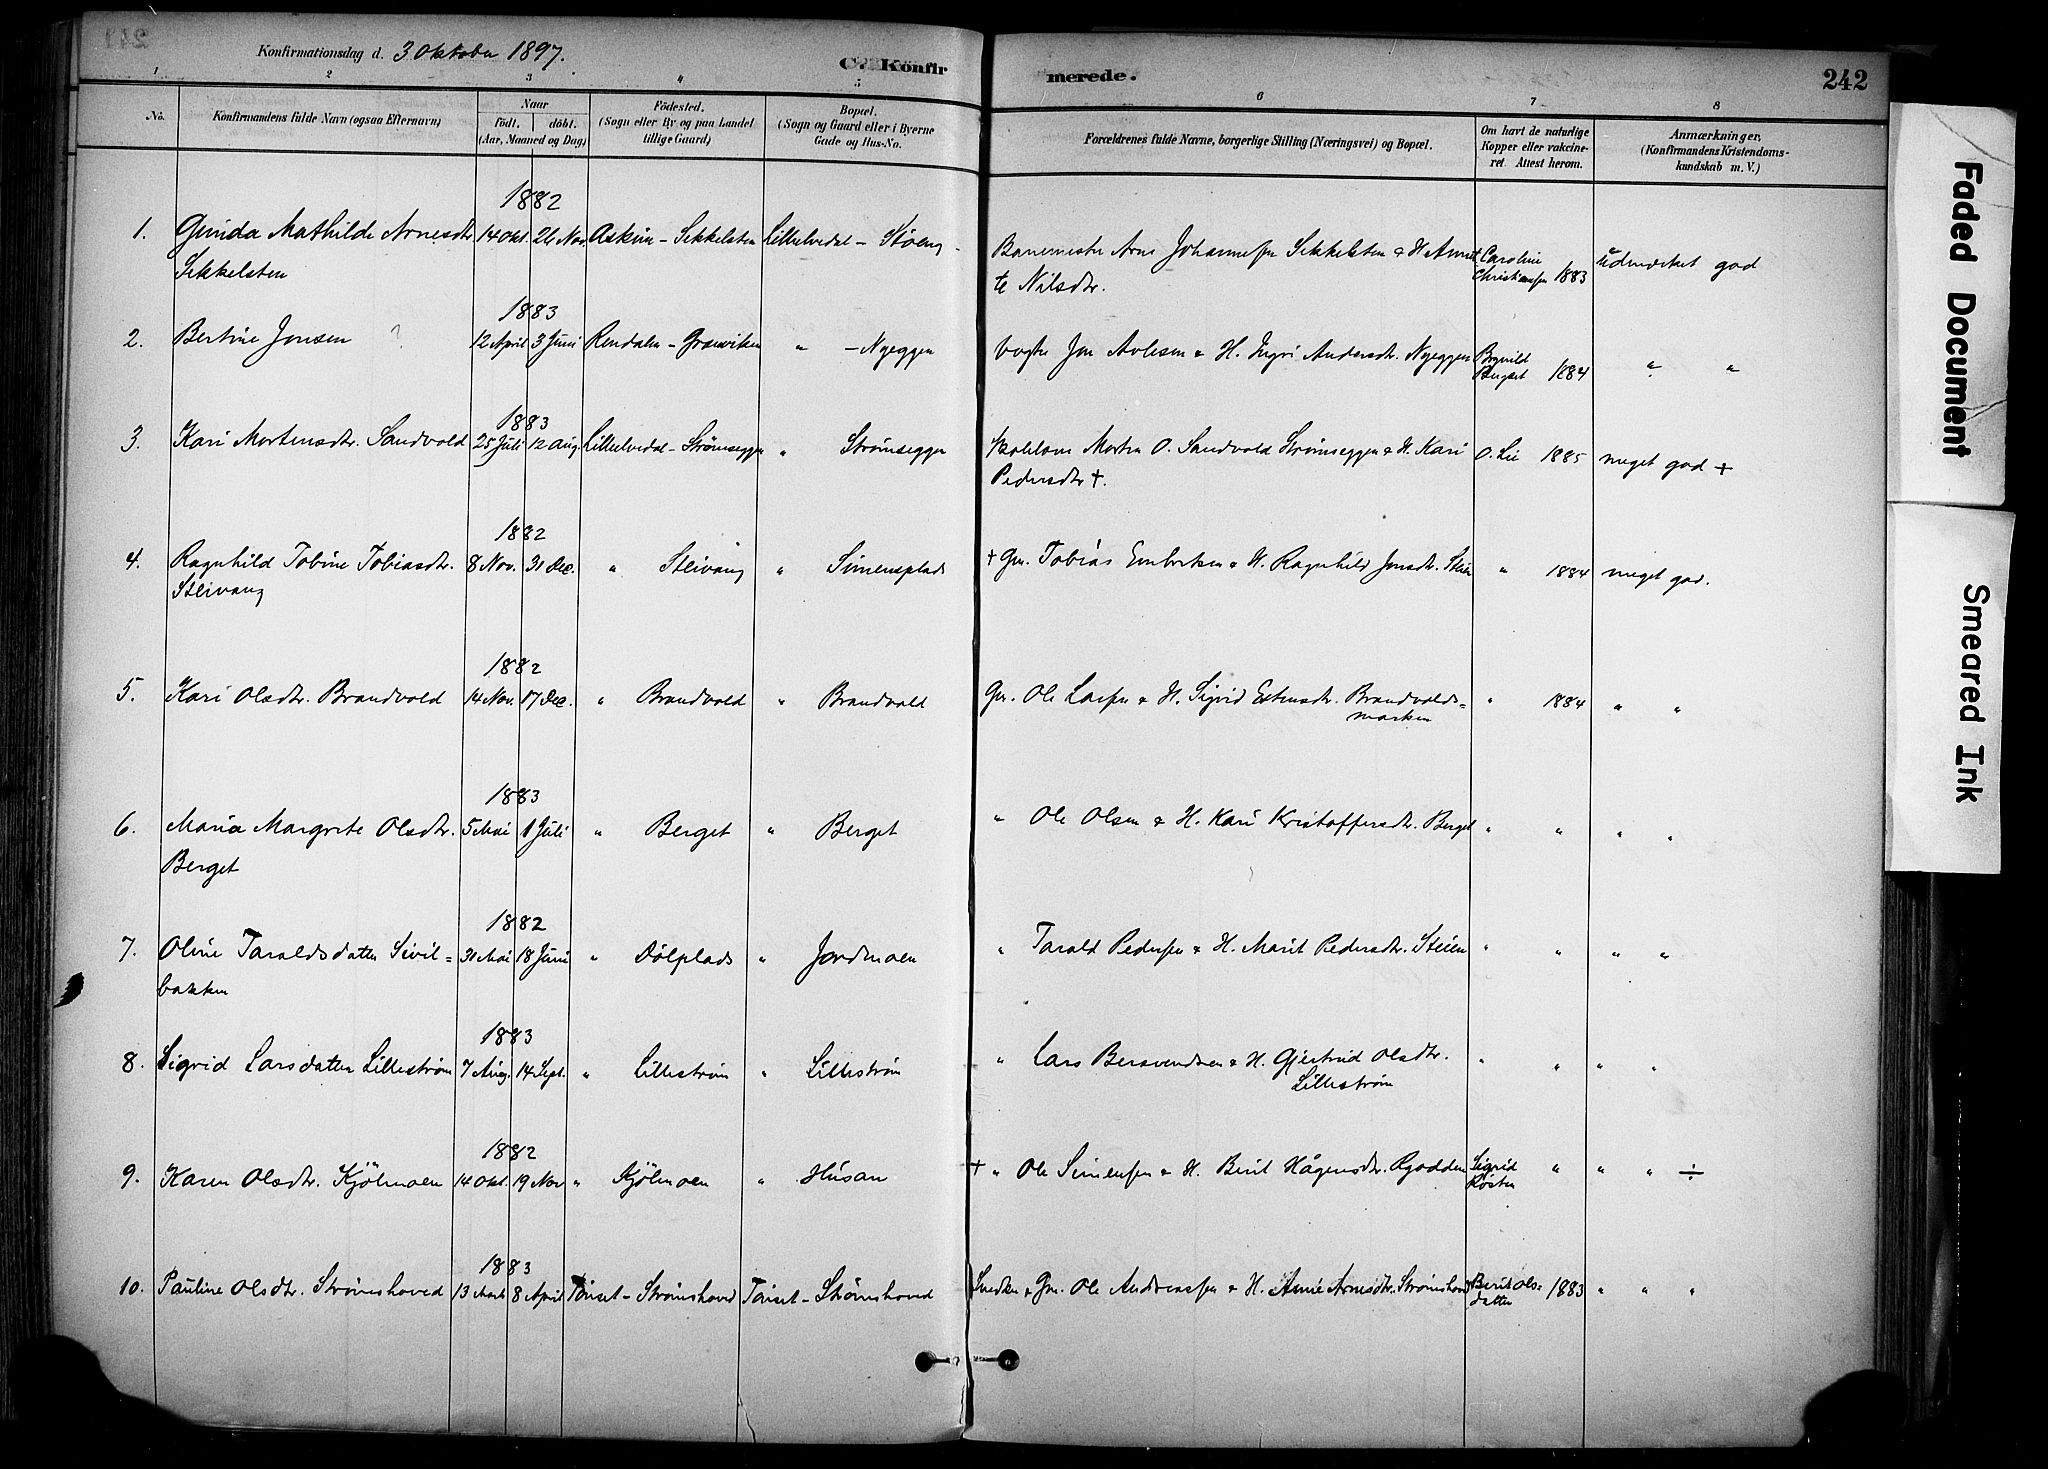 Konfirmationsdag d. 3 Oktober 1897.
C. Konfir
merede.
242
1 2 3 5 6 7 8
No.
Konfirmandens fulde Navn (ogsaa Efternavn)
Naar
födt. döbt.
(Aar, Maaned og Dag)
Födested.
(Sogn eller By og paa Landet
tillige Gaard)
Bopæl.
(Sogn og Gaard eller i Byerne
Gade og Hus-No.
Forældrenes fulde Navne, borgerlige Stilling (Næringsvei) og Bopæl.
Om havt de naturlige
Kopper eller vakcine-
ret. Attest herom.
Anmærkninger,
(Konfirmandens Kristendoms-
kundskab m. V.)
1882
1. Gunda Mathilde Arnesdtr. 14 Okt. 26 Nov. Askim - Sekkelsten Lilleelvedal - Stoeng
Banemester Arne Johannessen Sekkelsten & H. Annet
Caroline
udmerket god
Sekkelsten
te Nilsdtr.
Christiansen 1883
1883
2. Bertine Jonsen 12 April 3 Juni Rendalen - Græsviken " - Nyeggen
Vogter Jon Avlesen & H. Ingri Andersdtr. Nyeggen
Bergset 1884 " "
1883
3. Kari Mortensdtr. Sandvold 25 Juli 12 Aug. Lilleelvedal - Strømseggen " Strømseggen
Morten O. Sandvold Strømseggen & H. Kari
O. Lie 1885 meget god +
Pedersdtr +.
1882
4. Ragnhild Tobine Tobiasdtr. 8 Nov. 31 Dec. " Steivang " Simensplads
+ Gr. Tobias Embretsen & H. Ragnhild Jonsdtr. Steien " 1884 meget god.
Steivang
1882
5. Kari Olsdtr. Brandvold 14 Nov. 17 Dec. " Brandvold " Brandvold
Gr. Ole Larsen & H. Sigrid Estensdtr. Brandvolds= " 1884 " "
marken
1883
6. Maria Margrete Olsdtr. 5 Mai 1 Juli " Berget " Berget
" Ole Olsen & H. Kari Kristoffersdtr. Berget " " " "
Berget
1882
7. Oline Taraldsdatter Sivil= 31 Mai 18 Juni " Dölplads " Jordmoen
" Tarald Pedersen & H. Marit Pedersdtr. Steien " " " "
bakken
1883
8. Sigrid Larsdatter Lillestrøm 7 Aug. 14 Sept. " Lillestrøm " Lillestrøm
" Lars Bersvendsen & H. Gjertrud Olsdtr. " " " "
Lillestrøm
1882
9. Karen Olsdtr. Kjölmoen 14 Okt. 19 Nov " Kjölmoen " Husan
+ " Ole Simensen & H. Berit Hågensdtr. Rgodden Sigrid " " " ÷
Røsten
1883
10. Pauline Olsdtr. Strømshoved 13 Marts 8 April Tönset - Strømshoved Tönset - Strømshoved
Snedker & Gr. Ole Andreassen & H. Anne Arnesdtr. Strømshoved Berit Ols= 1883 " " "
datter
Faded Document
Smeared Ink